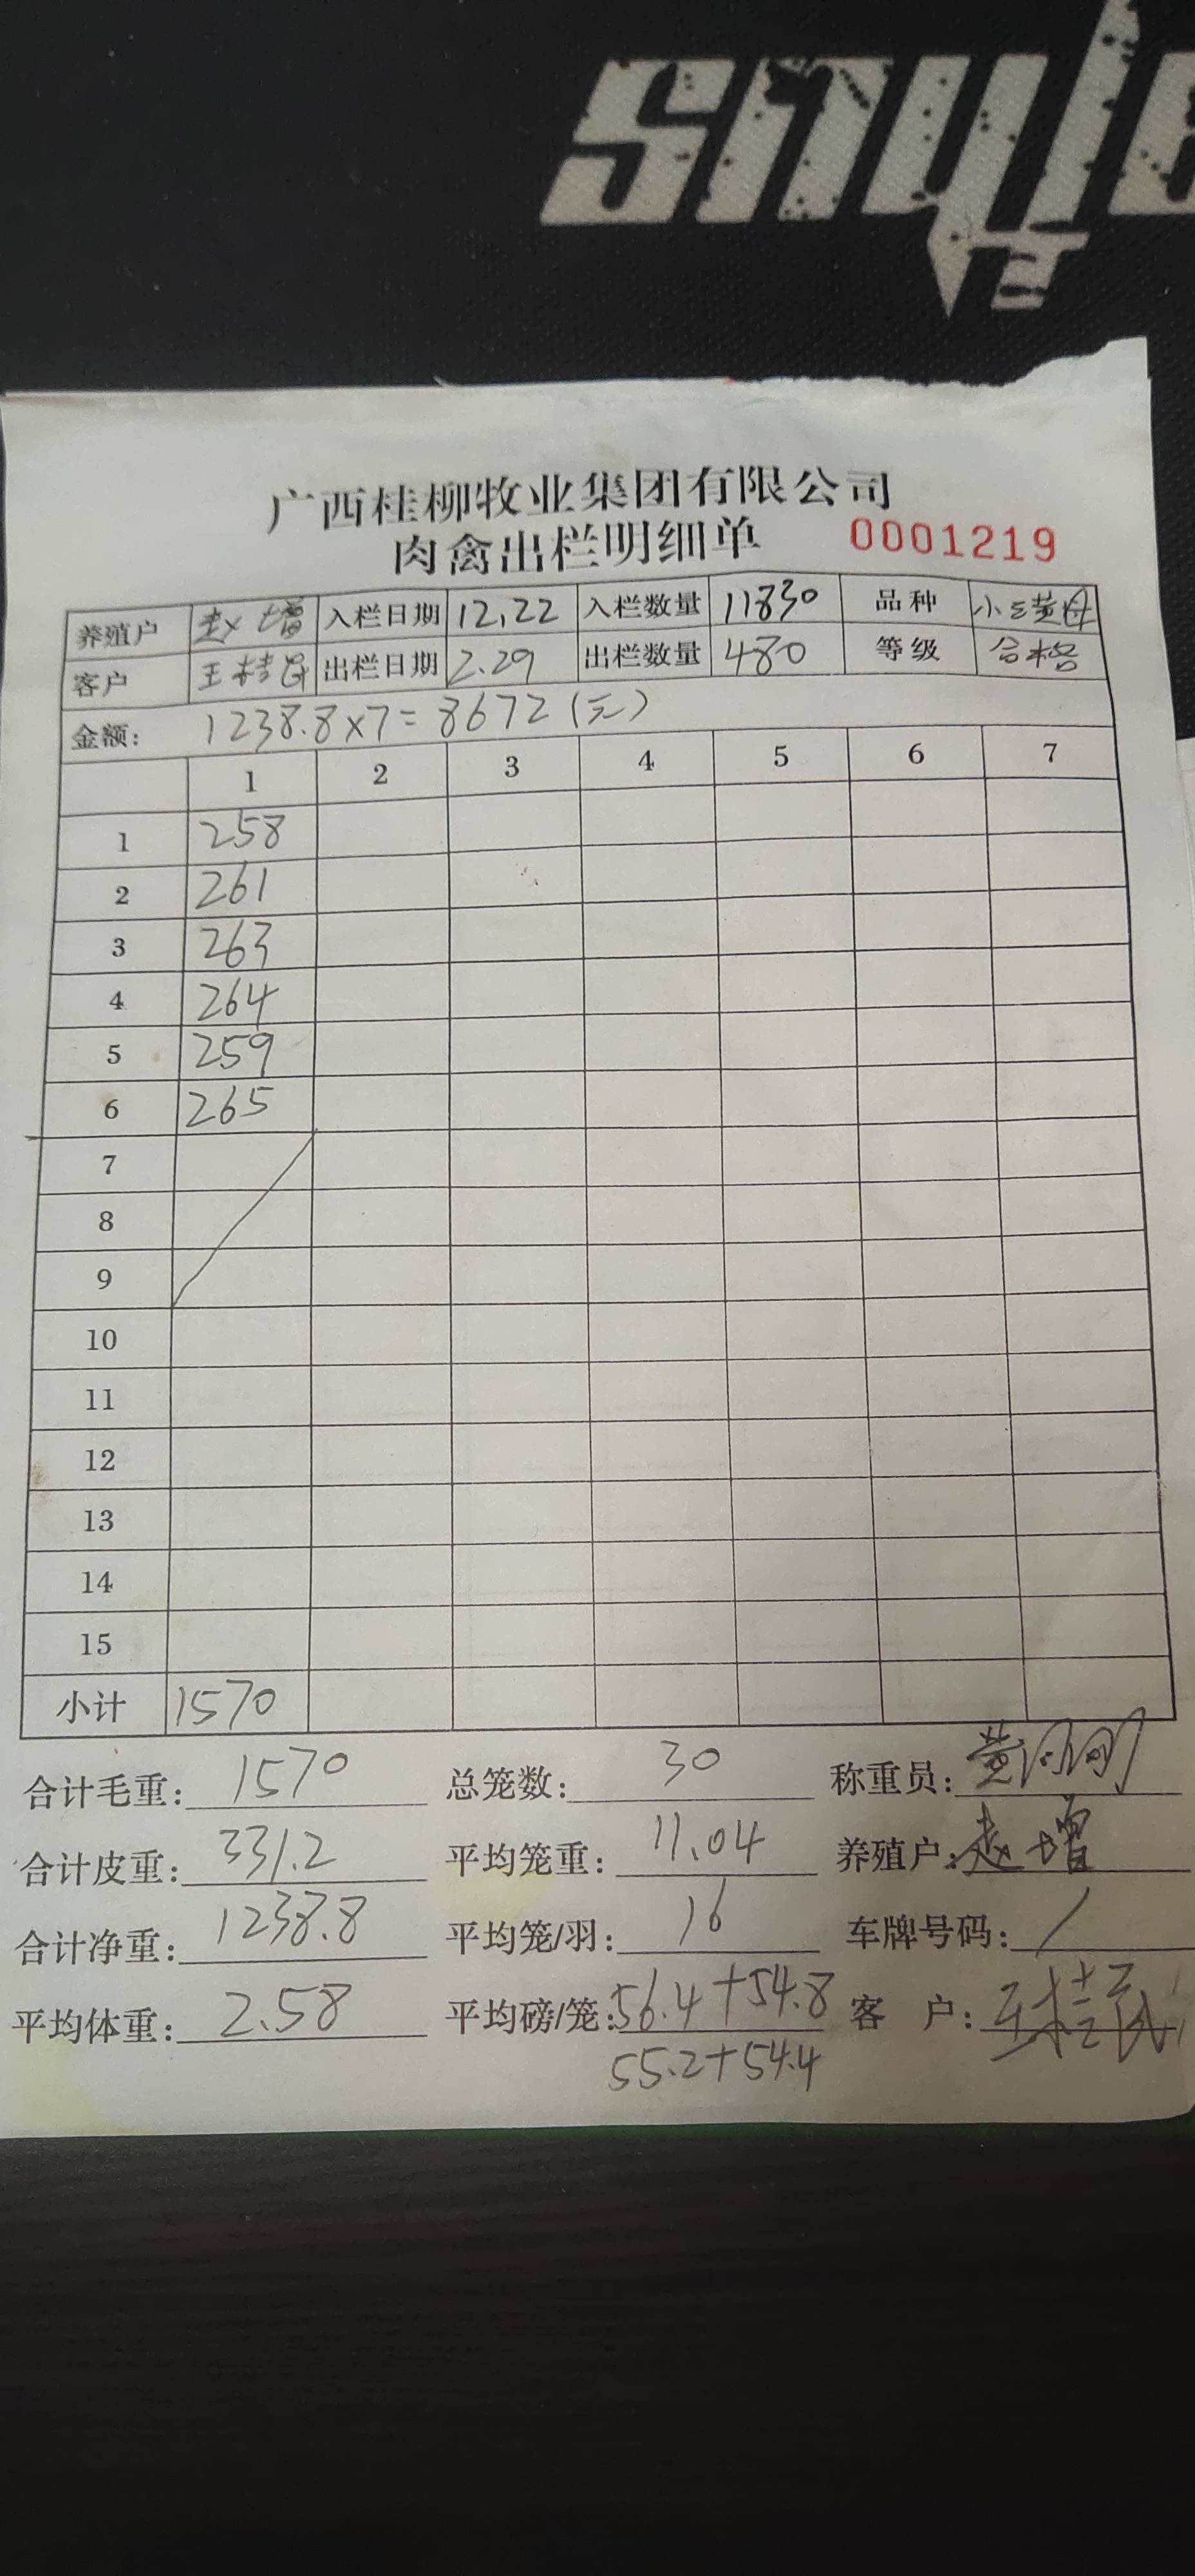 广西桂柳牧业集团有限公司
肉禽出栏明细单 0001219
养殖户 赵增 入栏日期 12.22 入栏数量 11830 品种 小三黄母
客户 王桂民 出栏日期 2.29 出栏数量 480 等级 合格
金额: 1238.8×7=8672(元)
1 2 3 4 5 6 7
1 258
2 261
3 263
4 264
5 259
6 265
7
8
9
10
11
12
13
14
15
小计 1570
合计毛重: 1570 总笼数: 30 称重员: 黄
合计皮重: 331.2 平均笼重: 11.04 养殖户: 赵增
合计净重: 1238.8 平均笼/羽: 16 车牌号码: /
平均体重: 2.58 平均磅/笼: 56.4+54.8 客户: 王桂民
55.2+54.4